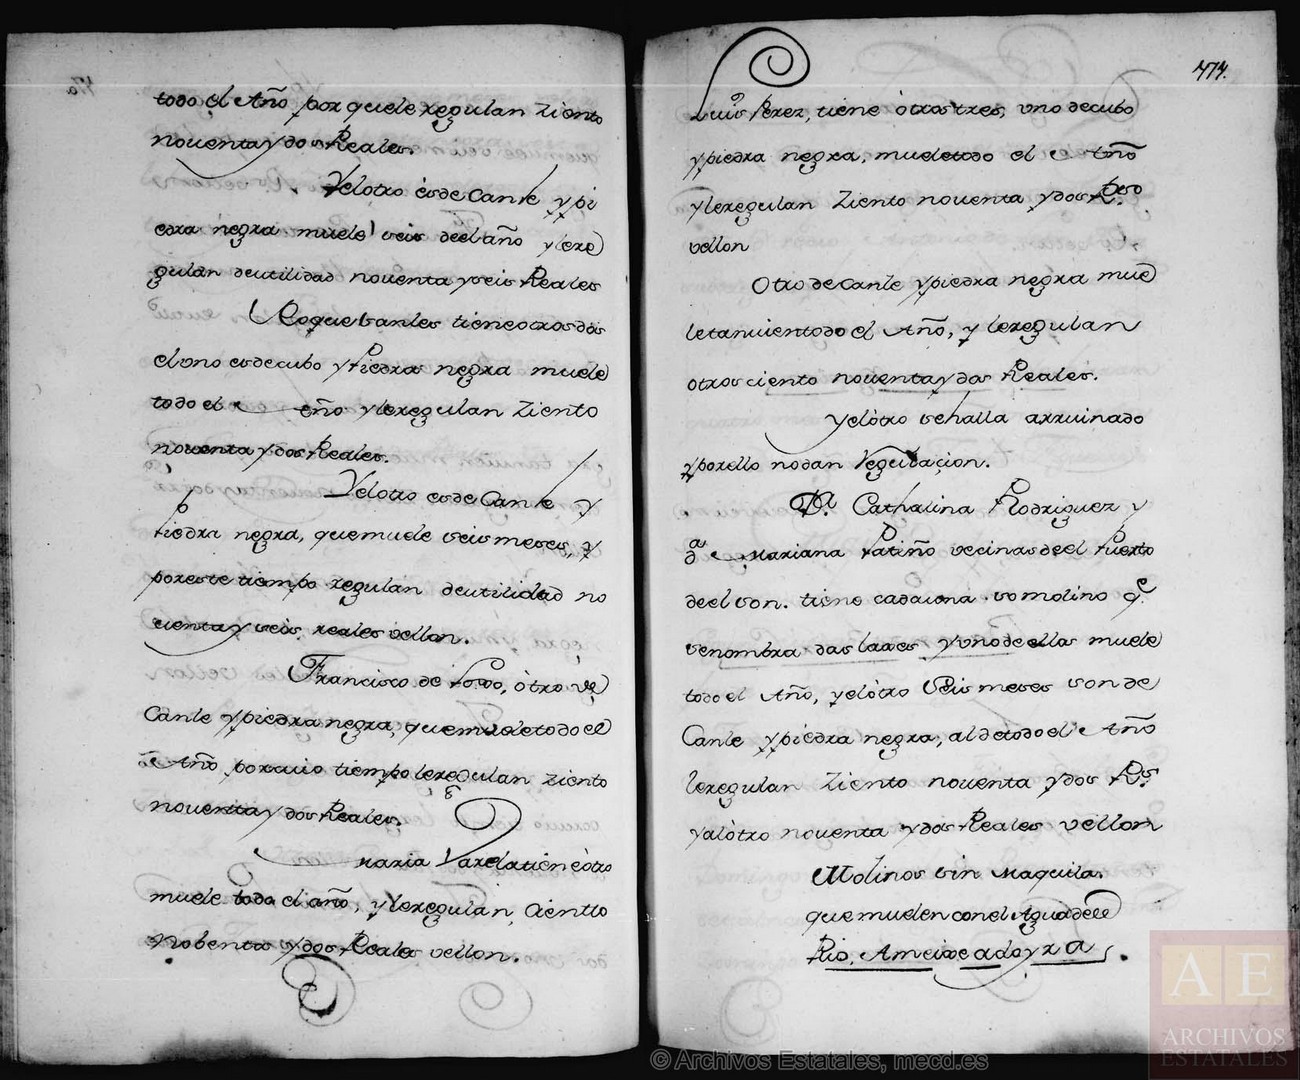 todo el Año por quele regulan ziento
noventa y dos Reales.
Yelotro es de Canle y pi
edra negra muele seis de el año y lere
gulan de utilidad noventa y seis Reales
Roque tiene otros dos
el uno es de cubo y piedra negra muele
todo el año y le regulan ziento
noventa y dos Reales.
Yelotro es de Canle y
piedra negra, que muele seis meses, y
por este tiempo regulan de utilidad no
uenta y seis reales vellon.
Francisco de otro de
Canle y piedra negra, que muele todo el
Año por cuio tiempo le regulan ziento
noventa y dos Reales.
Maria Varela tiene otro
muele todo el año, y le regulan, Ciento
y nobenta y dos Reales vellon.
474.
Luis Perez, tiene òtros tres, uno de cubo
y piedra negra, muele todo el Año
y le regulan ziento noventa y dos Rs
vellon
Otro de canle y piedra negra mue
le tanvien todo el Año, y le regulan
otros ciento noventa y dos Reales.
Yelòtro se halla arruinado
y por ello no dan Regulaçion.
Da. Cathalina Rodriguez y
da Mariana Patiño vecinas de el Puerto
de el son. tiene cada una su molino qe.
se nombra das laxes y uno de ellos muele
todo el Año, y elòtro Seis meses son de
Canle y piedra negra, al de todo el Año
le regulan ziento noventa y dos Rs.
y alòtro noventa y dos Reales vellon
Molinos sin Maquila.
que muelen con el Agua de el
Rio, Ameixeadoyra.
AE
ARCHIVOS
ESTATALES
© Archivos Estatales, mecd.es